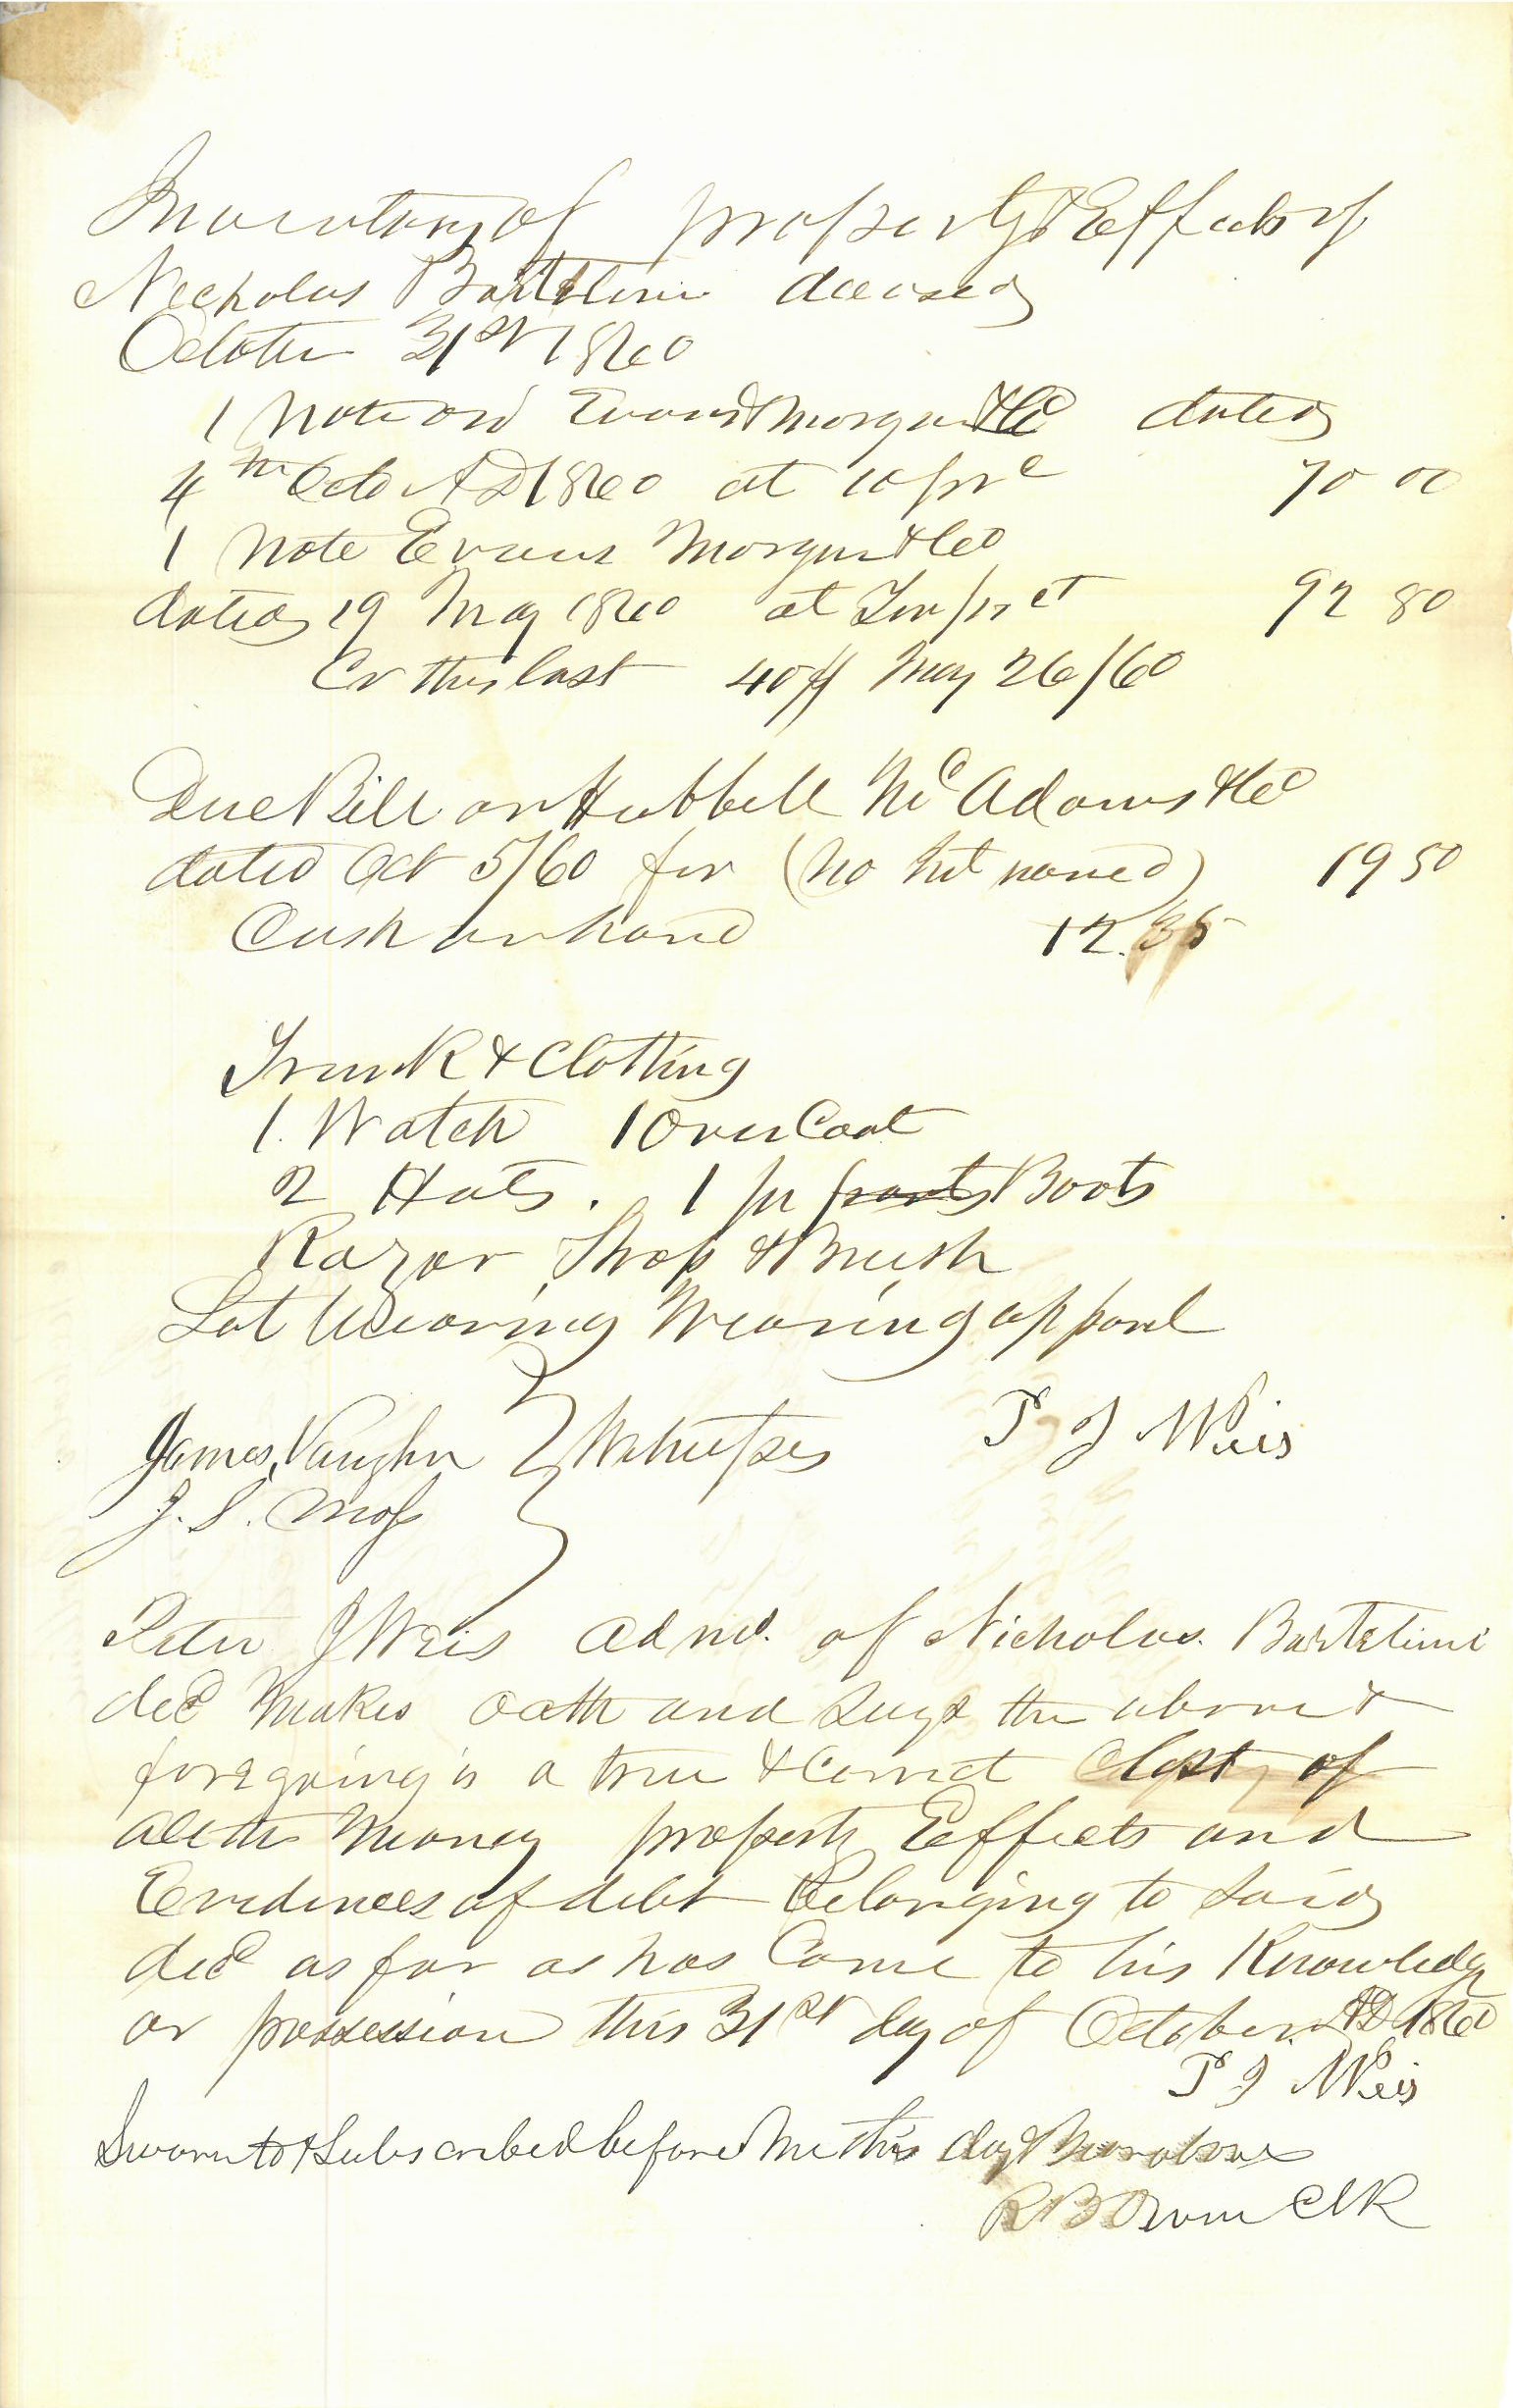 Inventory of property & Effects of
Nicholas Bartelime deceased
October 31st 1860
1 Note on Evans Morgan & Co dated
4th Octo AD 1860 at 10 pr c 70 00
1 Note Evans Morgan & Co
dated 19 May 1860 at Ten pr ct 92 80
Cr this last 40$ May 26/60
Due Bill on Hubbell McAdams & Co
dated Oct 5/60 for (no int named) 19 50
Cash on hand 12.35
Trunk & Clothing
1. Watch 1 Over Coat
2 Hats. 1 pr pants Boots
Razor Strop & Brush
Lot Wearing Wearing apparel
James Vaughn } Witnesses P J Weis
J. S. Moss
Peter J Weis Admr. of Nicholas Bartelime
decd makes oath and says the above &
foregoing is a true & correct List of
all the Money property Effects and
Evidences of debt Belonging to said
decd as far as has Come to his Knowledge
or possession this 31st day of October AD 1860
P J Weis
Sworn to & Subscribed before Me this day
R B Clk